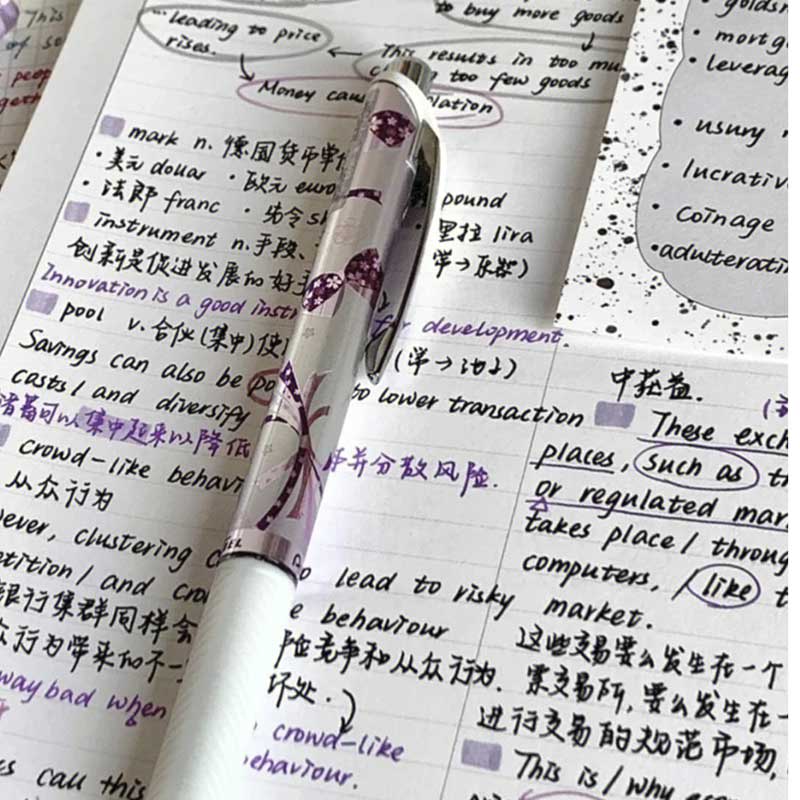 This
of so
peop
to buy more goods
leading to price
rises.
This results in too mu
too few goods
Money caus lation
mark n. 德国货币单
• 美元 douar • 欧元 euro pound
• 法郎 franc • 先令 sh 里拉 lira
instrument n. 手段、 (学→乐器)
创新是促进发展的好手
Innovation is a good instr for development.
pool v. 合伙(集中)使 (学→池子)
Savings can also be po to lower transaction
costs / and diversify
储蓄可以集中起来以降低 并分散风险.
crowd-like behavi
从众行为
ever, clustering c o lead to risky
etition / and cro e behaviour
银行集群同样会 险竞争和从众行为.
众行为带来的不一 坏处.
way bad when crowd-like
ehaviour.
s call this
golds
• mortg
• leverag
• usury
• lucrativ
• coinage
• adulterati
中获益.
These exch
places, such as t
or regulated mar
takes place / throug
computers, / like t
market.
这些交易要么发生在一个
票交易所,要么发生在
进行交易的规范市场,
This is / why